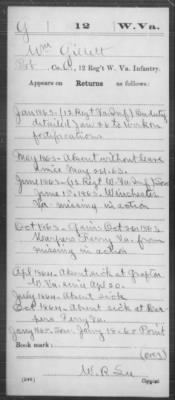 G 12 W. Va.
Wm Gillett
Pvt., Co. , 12 Reg't W. Va. Infantry.
Appears on Returns as follows:
Jan 1863. (12 Regt Va Inf) On duty
detailed Jan 26 to work on
fortifications
May 1863. Absent without leave
since May 25/63.
June 1863. (12 Regt W. Va Inf)
June 15, 1863. Winchester
Va. missing in action
Oct 1863. Gain Oct 26 1863
Harpers Ferry Va. from
missing in action
Apl 1864. Absent sick at Grafton
W. Va. since Apl 20.
July 1864. Absent sick
Oct 1864. Absent sick at Har
pers Ferry Va.
Jany 1865. Jany 18-65 Point
Book mark:
(over)
(546) Copyist.